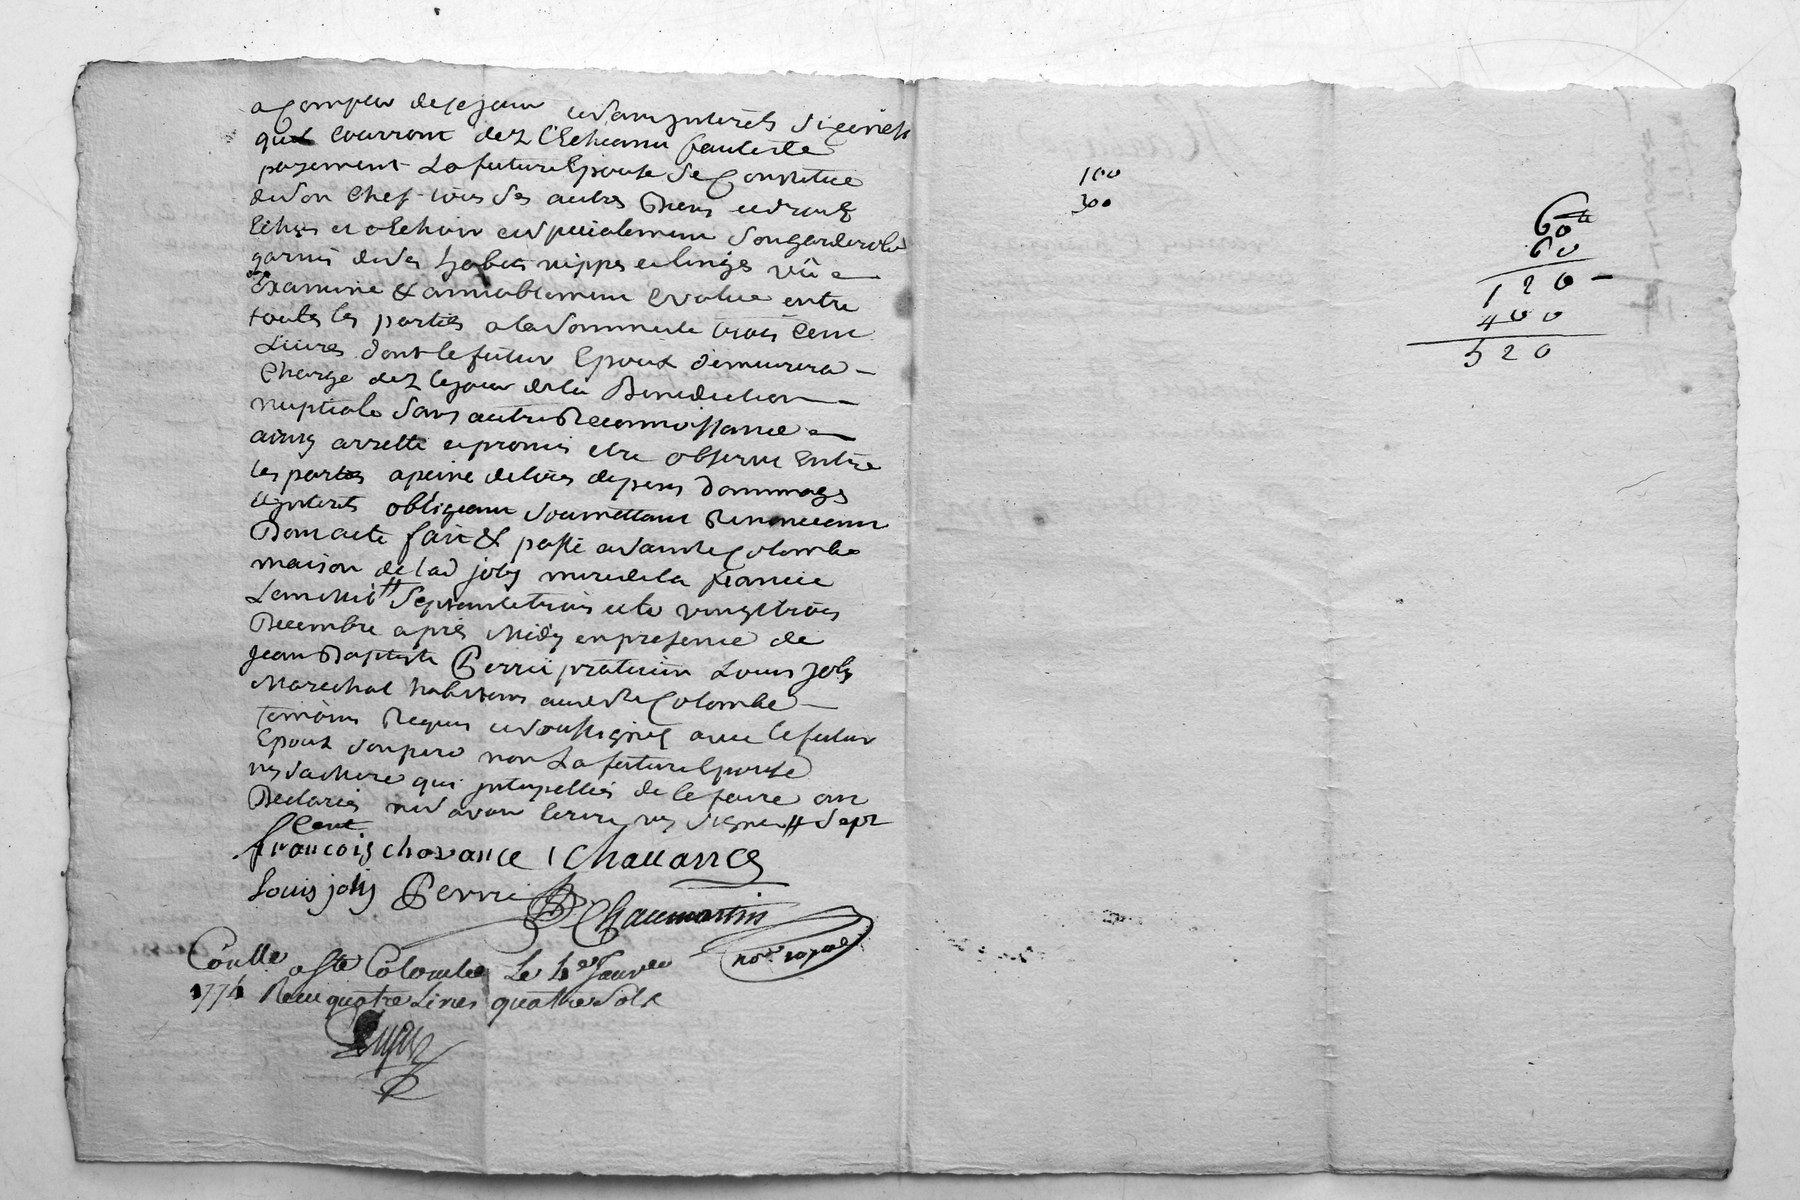 a Compter de ce jour et sans jnterets si ce n'est
quil courront dez l'Echeance faute de
payement La future Epouse se Constitue
de son Chef tous ses autres Biens et droits
Echus et a Echoir et specialement son garderobe
garnis de ses habits nippes et linges vû
Examiné & amiablement Evalué entre
toutes les parties a la somme de trois Cent
Livres dont le futur Epoux demeurera
Chargé dez le jour de la Benediction
nuptiale sans autre Reconnoissance
ainsy arretté et promis etre observé Entre
les parties a peine de tous depens dommages
& jnterets obligeant soumettant Renonceant
Dont acte fait & passé a Sainte Colombe
maison de lad joly mere de la fiancée
L'an mil # Septante trois et le vingt trois
Decembre après Midy en presence de
Jean Baptiste Perrié praticien Louis Joly
Marechal habitans aud Ste Colombe
temoins Requis et soussignés avec le futur
Epoux son pere non La future Epouse
ny sa Mere qui jnterpellés de le faire ont
Declarés ne savoir Ecrire ny Signer # Sept
Cent
francois chovance Chavance
Louis joly Perrié Chaumartin
nore royal
Conllé a Ste Colombe Le 4e Janvier
1774 Recu quatre Livres quatre Sols
100
300
60
60
120
400
520